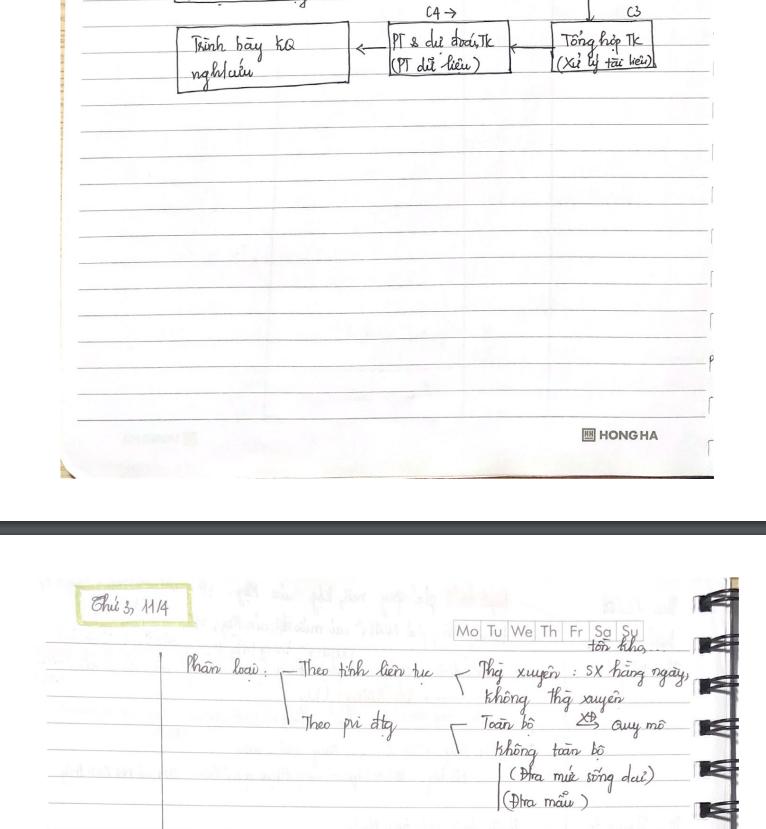 C4 → C3
Trình bày KQ ← PT & dự đoán TK ← Tổng hợp TK
nghcứu (PT dữ liệu) (Xử lý tài liệu)
HONG HA
Thứ 3, 11/4
Mo Tu We Th Fr Sa Su
tồn kho...
Phân loại: Theo tính liên tục Thg xuyên: SX hằng ngày,
Không thg xuyên
Theo pvi đtg Toàn bộ XĐ Quy mô
Không toàn bộ
(Đtra mức sống dcư)
(Đtra mẫu)